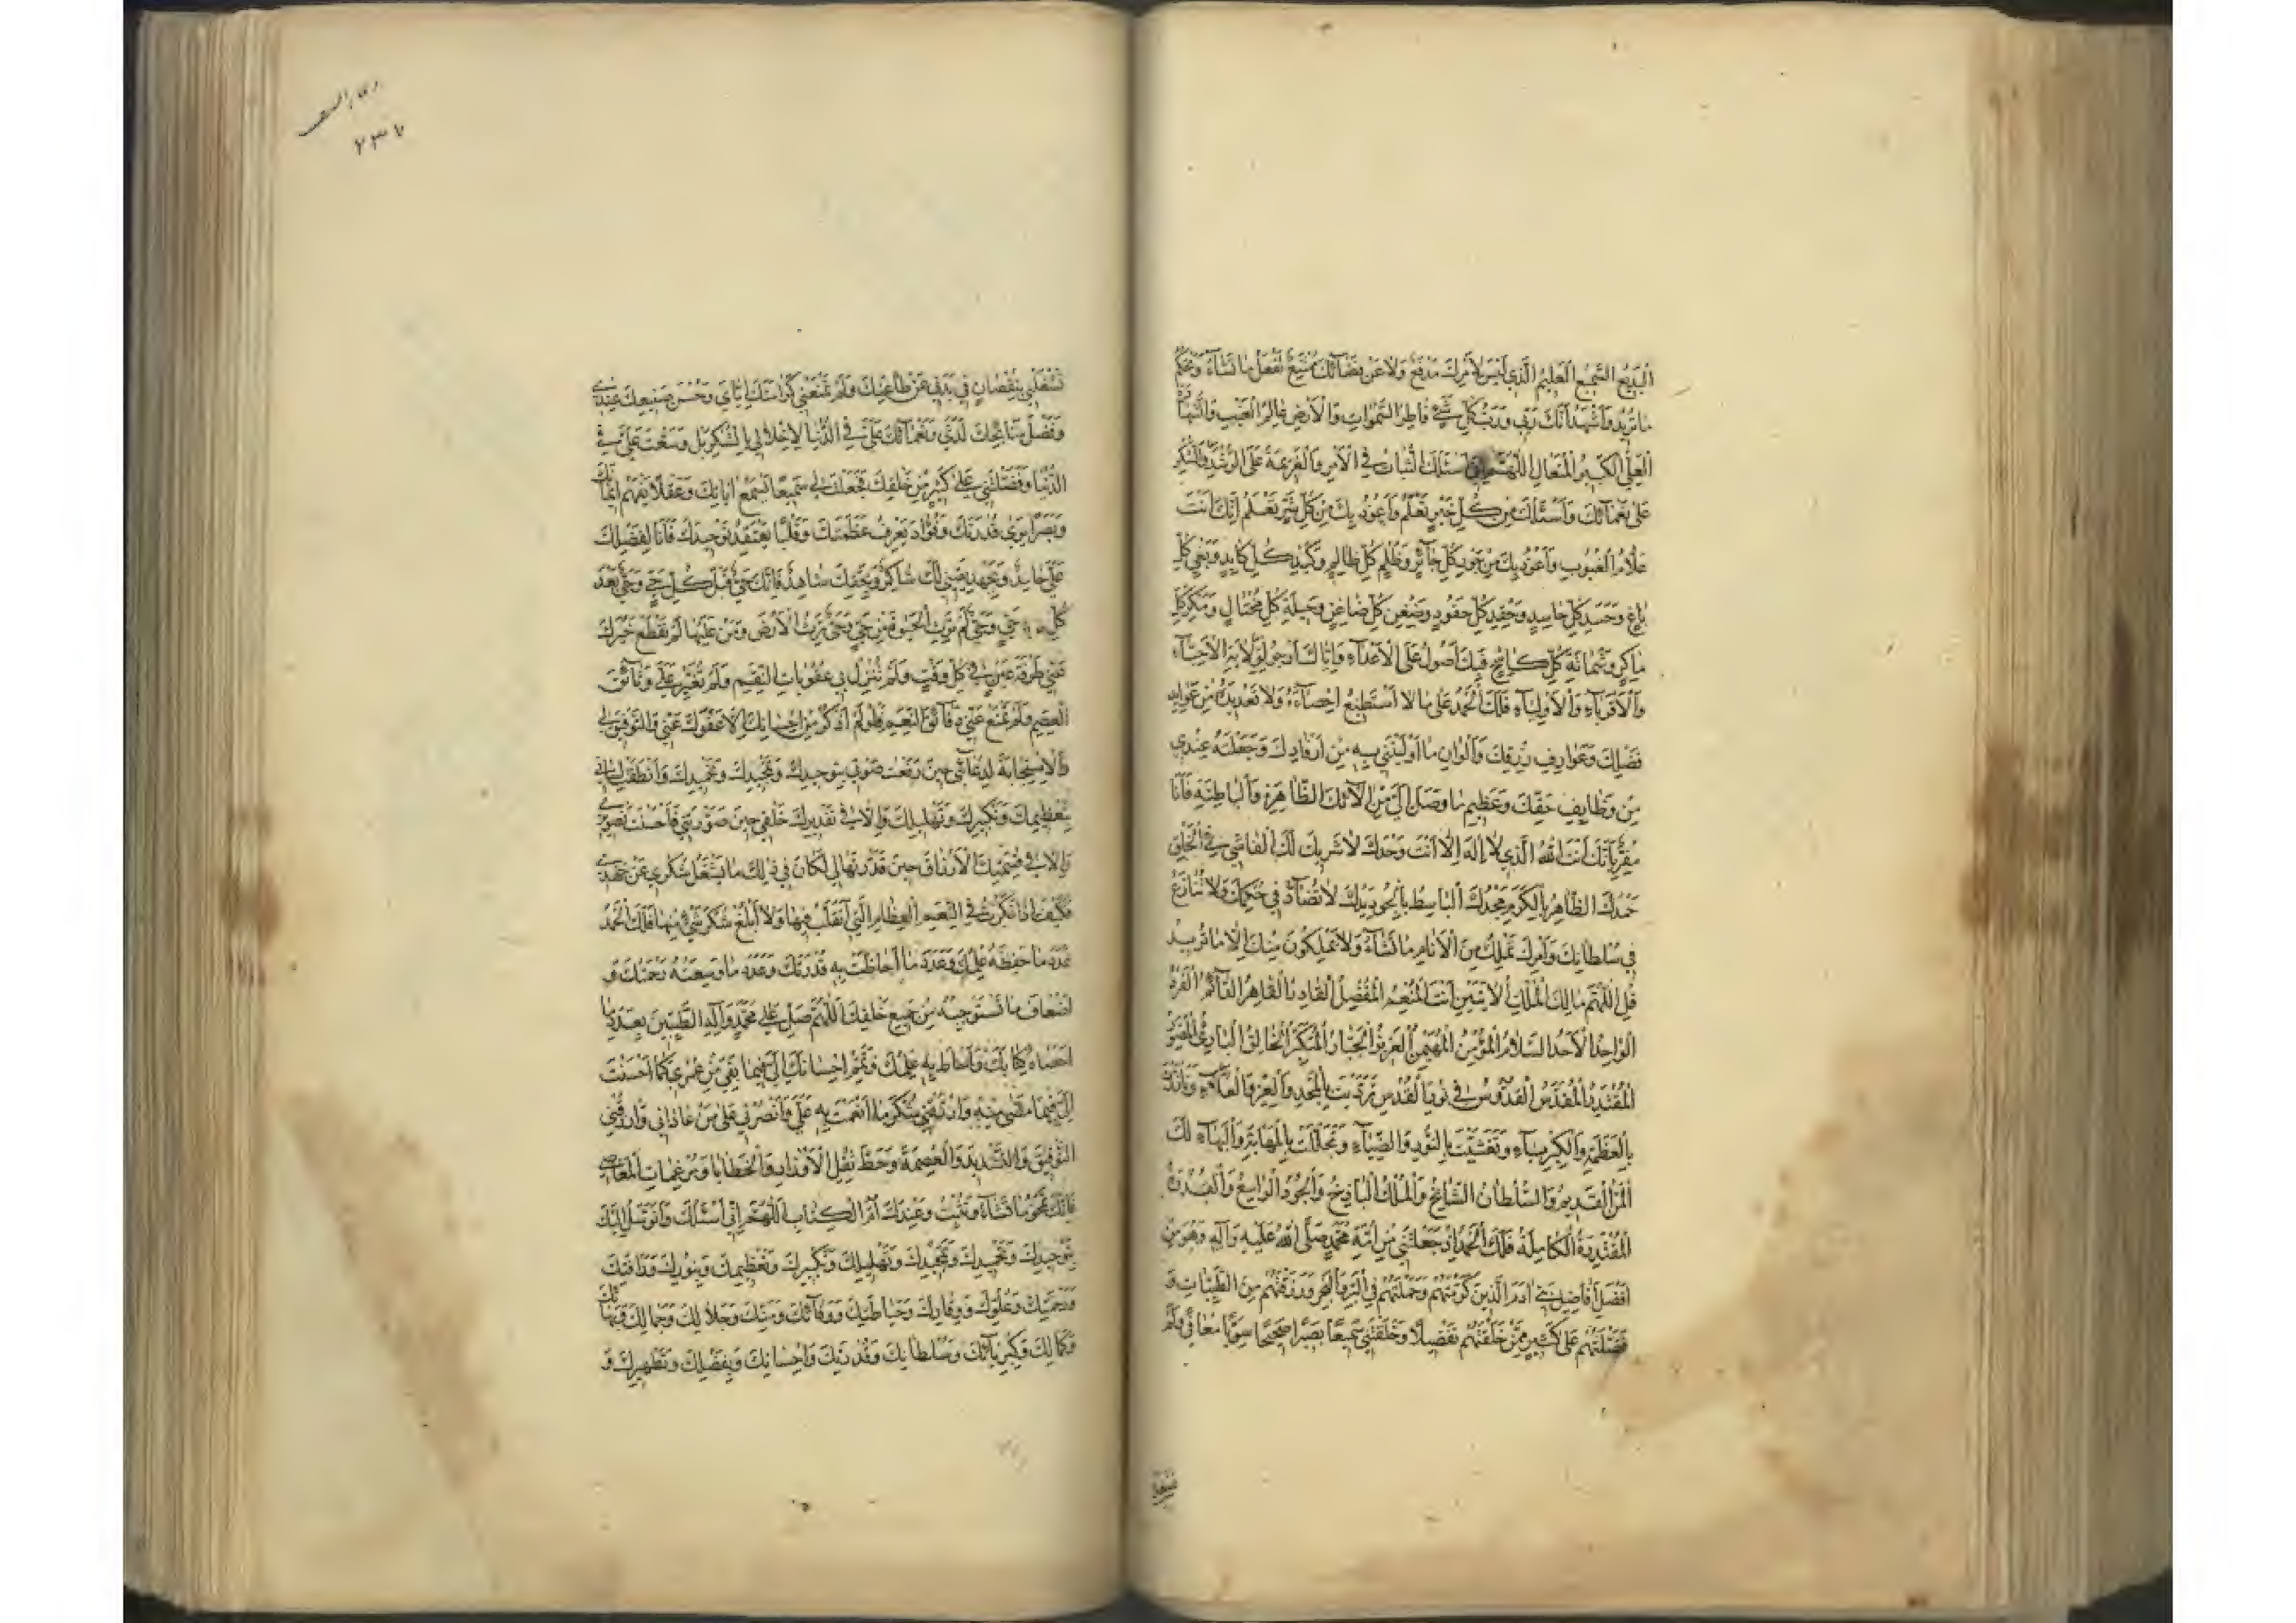 البديع السميع العليم الذي ليس لأمرك مدفع ولا عن قضائك ممتنع تفعل ما تشاء وتحكم
ما تريد وأشهد أنك ربي ورب كل شيء فاطر السموات والأرض عالم الغيب والشهادة
العلي الكبير المتعال اللهم إني أسئلك الثبات في الأمر والعزيمة على الرشد والشكر
على نعمائك وأسئلك من كل خير تعلم وأعوذ بك من كل شر تعلم إنك أنت
علام الغيوب وأعوذ بك من جور كل جائر وظلم كل ظالم وكيد كل كايد وبغي كل
باغ وحسد كل حاسد وحقد كل حقود وضغن كل ضاغن وحيلة كل محتال ومكر كل
ماكر وشماتة كل كاشح فبك أصول على الأعداء وإياك أرجو لولاية الأحباء
والأقرباء والأولياء فلك الحمد على ما لا أستطيع إحصاءه ولا تعديده من عوايد
فضلك وعوارف رزقك وألوان ما أوليتني به من أرفادك وجعلته عندي
من وظايف حقك وعظيم ما وصل إلي من آلائك الظاهرة والباطنة فأنا
مقر بأنك أنت الله الذي لا إله إلا أنت وحدك لا شريك لك الفاشي في الخلق
حمدك الظاهر بالكرم مجدك الباسط بالجود يدك لا تضاد في حكمك ولا تنازع
في سلطانك وأمرك تملك من الأنام ما تشاء ولا يملكون منك إلا ما تريد
قل اللهم مالك الملك الآيتين أنت المنعم المفضل القادر القاهر القائم الفرد
الواحد الأحد السلام المؤمن المهيمن العزيز الجبار المتكبر الخالق البارئ المصور
المقتدر المقدس القدوس في نور القدس ترديت بالمجد والعز والعلاء وتأزرت
بالعظمة والكبرياء وتغشيت بالنور والضياء وتجللت بالمهابة والبهاء لك
المن القديم والسلطان الشامخ والملك الباذخ والجود الواسع والقدرة
المقتدرة الكاملة فلك الحمد إذ جعلتني من أمة محمد صلى الله عليه وآله وهو من
أفضل أفاضل بني آدم الذين كرمتهم وحملتهم في البر والبحر ورزقتهم من الطيبات و
فضلتهم على كثير ممن خلقتهم تفضيلا وخلقتني سميعا بصيرا صحيحا سويا معافى ولم
تشغلني
٧٣٧
تشغلني بنقصان في بدني عن طاعتك ولم تمنعني كرامتك إياي وحسن صنيعك عندي
وفضل منائحك لدي ونعمائك علي في الدنيا لإخلالي بالشكر بل وسعت علي في
الدنيا وفضلتني على كثير من خلقك فجعلت لي سميعا يسمع آياتك وعقلا يفهم إيمانك
وبصرا يرى قدرتك وفؤاد يعرف عظمتك وقلبا يعتقد توحيدك فأنا لفضلك
علي حامد وبجهد يقيني لك شاكر وبحقك شاهد فإنك حي قبل كل حي وحي بعد
كل حي وحي لم ترث الحيوة من حي وحي ترث الأرض ومن عليها لم تقطع خيرك
عني طرفة عين في كل وقت ولم تنزل بي عقوبات النقم ولم تغير علي وثائق
العصم ولم تمنع عني دقائق النعم فلو لم أذكر من إحسانك إلا عفوك عني والتوفيق لي
والاستجابة لدعائي حين رفعت صوتي بتوحيدك وتمجيدك وتحميدك وأنطقت لساني
بتعظيمك وتكبيرك وتهليلك وإلا في تقديرك خلقي حين صورتني فأحسنت تصويري
وإلا في قسمتك الأرزاق حين قدرتها لي لكان في ذلك ما يشغل شكري عن جهدي
فكيف إذا فكرت في النعم العظام التي أتقلب فيها ولا أبلغ شكر شيء منها فلك الحمد
عدد ما حفظه علمك وعدد ما أحاطت به قدرتك وعدد ما وسعته رحمتك و
أضعاف ما تستوجبه من جميع خلقك اللهم صل على محمد وآله الطيبين بعدد ما
أحصاه كتابك وأحاط به علمك وتمم إحسانك إلي فيما بقي من عمري كما أحسنت
إلي فيما مضى منه وارزقني شكر ما أنعمت به علي وانصرني على من عاداني وارزقني
التوفيق والتسديد والعصمة وحط ثقل الأوزار والخطايا ومرغمات المعاصي
فإنك تمحو ما تشاء وتثبت وعندك أم الكتاب اللهم إني أسئلك وأتوسل إليك
بتوحيدك وتحميدك وتمجيدك وتهليلك وتكبيرك وتعظيمك وبنورك ورأفتك
ورحمتك وعلوك ووقارك وحياطتك ووقائك ومنك وجلالك وجمالك وبهائك
وكمالك وكبريائك وسلطانك وقدرتك وإحسانك وبفضلك وتطهيرك و